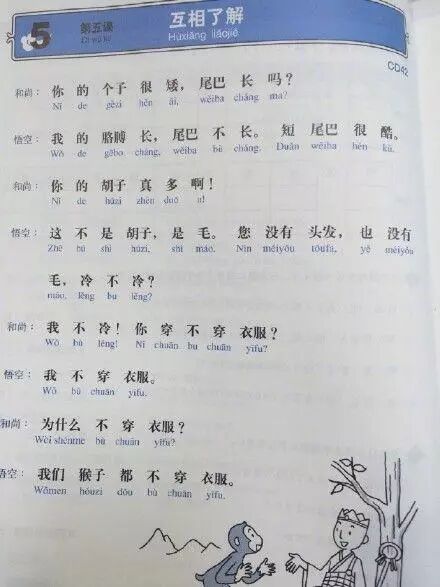 5 第五课 互相了解
Dì wǔ kè Hùxiāng liǎojiě
CD42
和尚：你 的 个子 很 矮，尾巴 长 吗？
Nǐ de gèzi hěn ǎi, wěiba cháng ma?
悟空：我 的 胳膊 长，尾巴 不 长。短 尾巴 很 酷。
Wǒ de gēbo cháng, wěiba bù cháng. Duǎn wěiba hěn kù.
和尚：你 的 胡子 真 多 啊！
Nǐ de húzi zhēn duō a!
悟空：这 不 是 胡子，是 毛。您 没有 头发，也 没有
Zhè bú shì húzi, shì máo. Nín méiyǒu tóufa, yě méiyǒu
毛，冷 不 冷？
máo, lěng bu lěng?
和尚：我 不 冷！你 穿 不 穿 衣服？
Wǒ bù lěng! Nǐ chuān bu chuān yīfu?
悟空：我 不 穿 衣服。
Wǒ bù chuān yīfu.
和尚：为什么 不 穿 衣服？
Wèi shénme bù chuān yīfu?
悟空：我们 猴子 都 不 穿 衣服。
Wǒmen hóuzi dōu bù chuān yīfu.